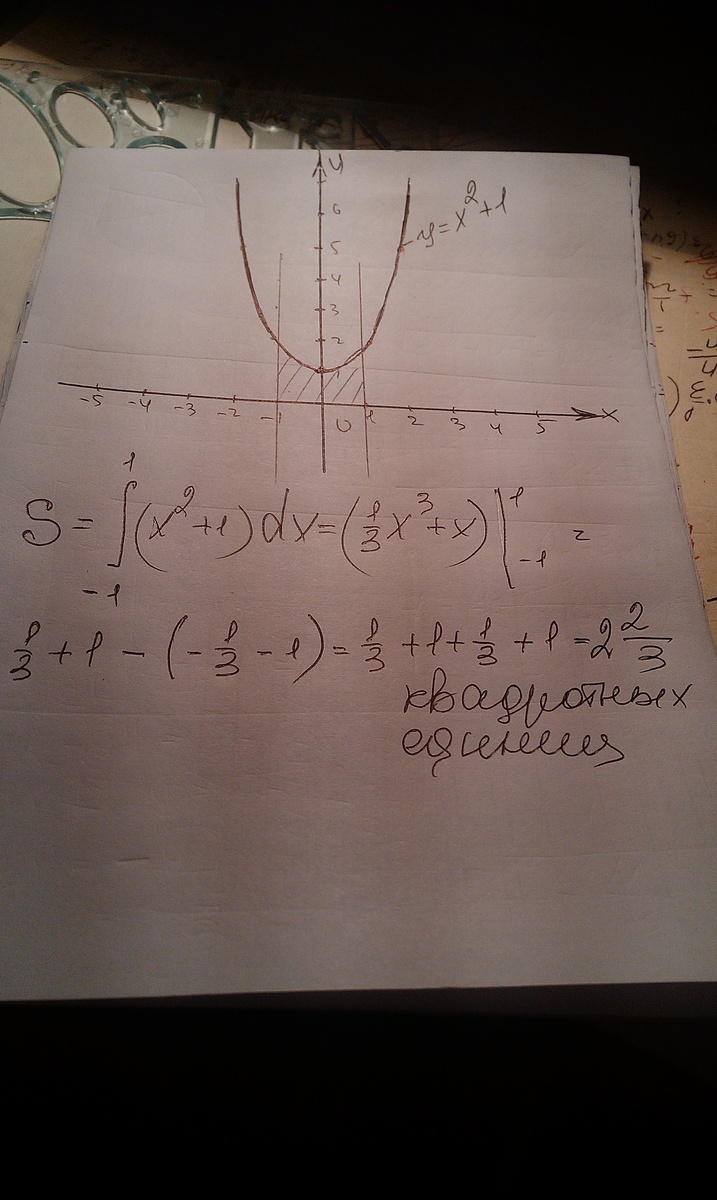 y
6
5
4
3
2
1
y=x²+1
-5 -4 -3 -2 -1 0 1 2 3 4 5 x
S = ∫₋₁¹ (x²+1) dx = (1/3 x³ + x) |₋₁¹ =
1/3 + 1 - (-1/3 - 1) = 1/3 + 1 + 1/3 + 1 = 2 2/3
квадротных
единиц